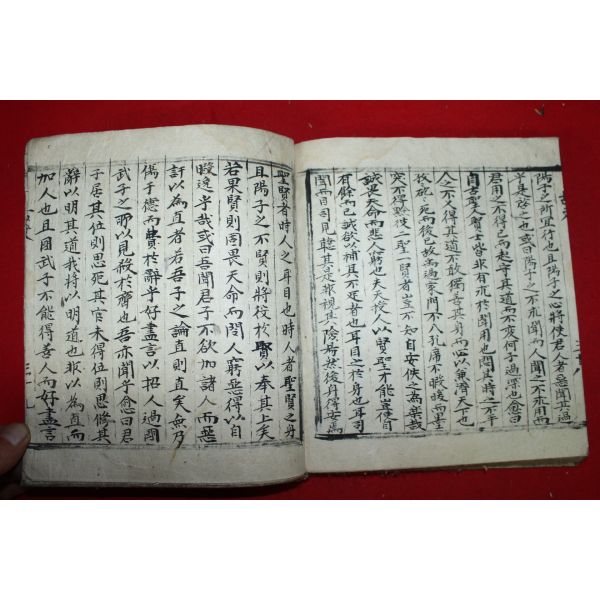 陽子之所宜行也且陽子之心將使君人者惡聞其過
乎是啓之也或曰陽子之不求聞而人聞之不求用而
君用之不得已而起守其道而不變何子過深也愈曰
自古聖人賢士皆非有求於聞用也閔其時之不平
人之不乂得其道不敢獨善其身而必以兼濟天下也
孜矻死而後已故禹過家門不入孔席不暇暖而墨
突不得黔彼二聖一賢者豈不知自安佚之為樂哉
誠畏天命而悲人窮也夫天授人以賢聖才能豈使自
有餘而已誠欲以補其不足者也耳目之於身也耳司
聞而目司見聽其是非視其險易然後身得安焉
聖賢者時人之耳目也時人者聖賢之身
且陽子之不賢則將役於賢以奉其上矣
若果賢則固畏天命而閔人窮惡得以自
暇逸乎哉或曰吾聞君子不欲加諸人而惡
訐以為直者若吾子之論直則直矣無乃
傷于德而費於辭乎好盡言以招人過國
武子之所以見殺於齊也吾亦聞乎愈曰君
子居其位則思死其官未得位則思修其
辭以明其道我將以明道也非以為直而
加人也且國武子不能得善人而好盡言